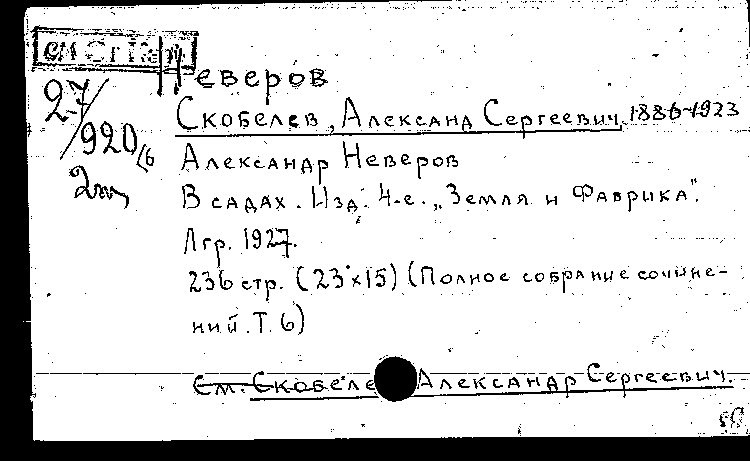 Неверов
27/920
Скобелев, Александ Сергеевич 1886-1923
Александр Неверов
В садах. Изд. 4-е. „Земля и Фабрика".
Лгр. 1927.
236 стр. (23×15) (Полное собрание сочине-
ний. Т. 6)
См. Скобеле Александр Сергеевич.